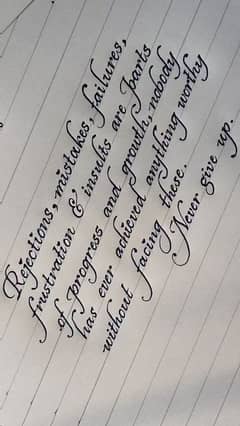 Rejections, mistakes, failures,
frustration & insults are parts
of progress and growth, nobody
has ever achieved anything worthy
without facing these.
Never give up.